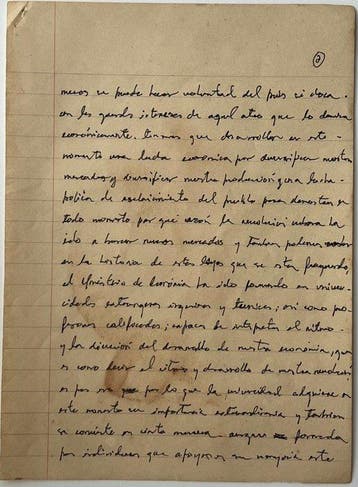 2
menos se puede hacer voluntad del país si choca
con los grandes intereses de aquel otro que lo domina
económicamente. Tenemos que desarrollar en este
momento una lucha económica por diversificar nuestros
mercados y diversificar nuestra producción y una lucha
política de esclarecimiento del pueblo para demostrar en
todo momento por qué la revolución cubana ha
ido a buscar nuevos mercados y también
en la historia de estos que se están fraguando,
el Ministerio de Economía ha ido formando en univer-
sidades extranjeras ingenieros y técnicos; así como pro-
fesores calificados; capaces de interpretar el ritmo
y la dirección del desarrollo de nuestra economía, que
es como decir el ritmo y desarrollo de nuestra revolución
es por eso por lo que la universidad adquiere en
este momento su importancia extraordinaria y también
se convierte en cierta manera formada
por individuos que apoyan en su mayoría este